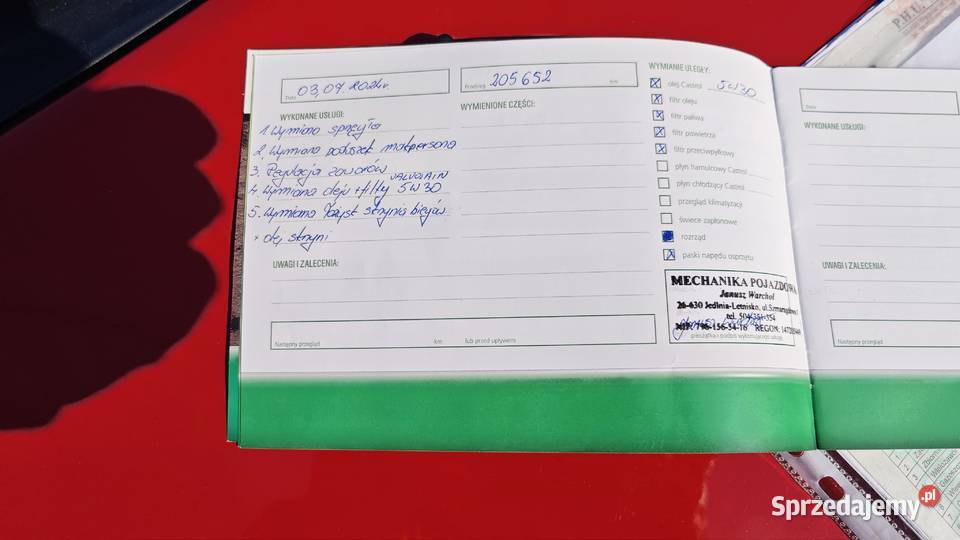 P.H.U.
03,04 2024r.
Data
205652
Przebieg
km
WYKONANE USŁUGI:
1. Wymiana sprzęgła
2. Wymiana poduszek makpersona
3. Regulacja zaworów
4. Wymiana oleju + filtry 5W30
5. Wymiana łożysk skrynia biegów
+ olej skryni
WYMIENIONE CZĘŚCI:
UWAGI I ZALECENIA:
Następny przegląd
km
lub przed upływem
WYMIANIE ULEGŁY:
olej Castrol 5W30
filtr oleju
filtr paliwa
filtr powietrza
filtr przeciwpyłkowy
płyn hamulcowy Castrol
płyn chłodzący Castrol
przegląd klimatyzacji
świece zapłonowe
rozrząd
paski napędu osprzętu
MECHANIKA POJAZDOWA
Janusz Warchoł
26-630 Jedlnia-Letnisko, ul.Szmaragdowa
tel. 504
NIP: 796-156-54-16 REGON:
pieczątka i podpis wykonującego usługę
Data
WYKONANE USŁUGI:
UWAGI I ZALECENIA:
Następny przegląd
Sprzedajemy.pl